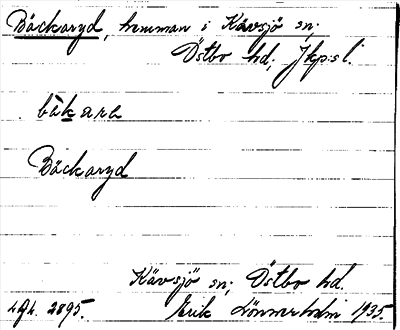 Bäckaryd, hemman i Kävsjö sn;
Östbo hd, Jkp:s l.
bàkara
Bäckaryd
Kävsjö sn; Östbo hd.
Erik Lönnerholm 1935.
2895.